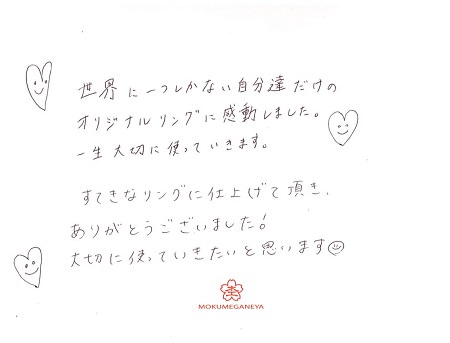 世界に一つしかない自分達だけの
オリジナルリングに感動しました。
一生大切に使っていきます。
すてきなリングに仕上げて頂き、
ありがとうございました!
大切に使っていきたいと思います
MOKUMEGANEYA